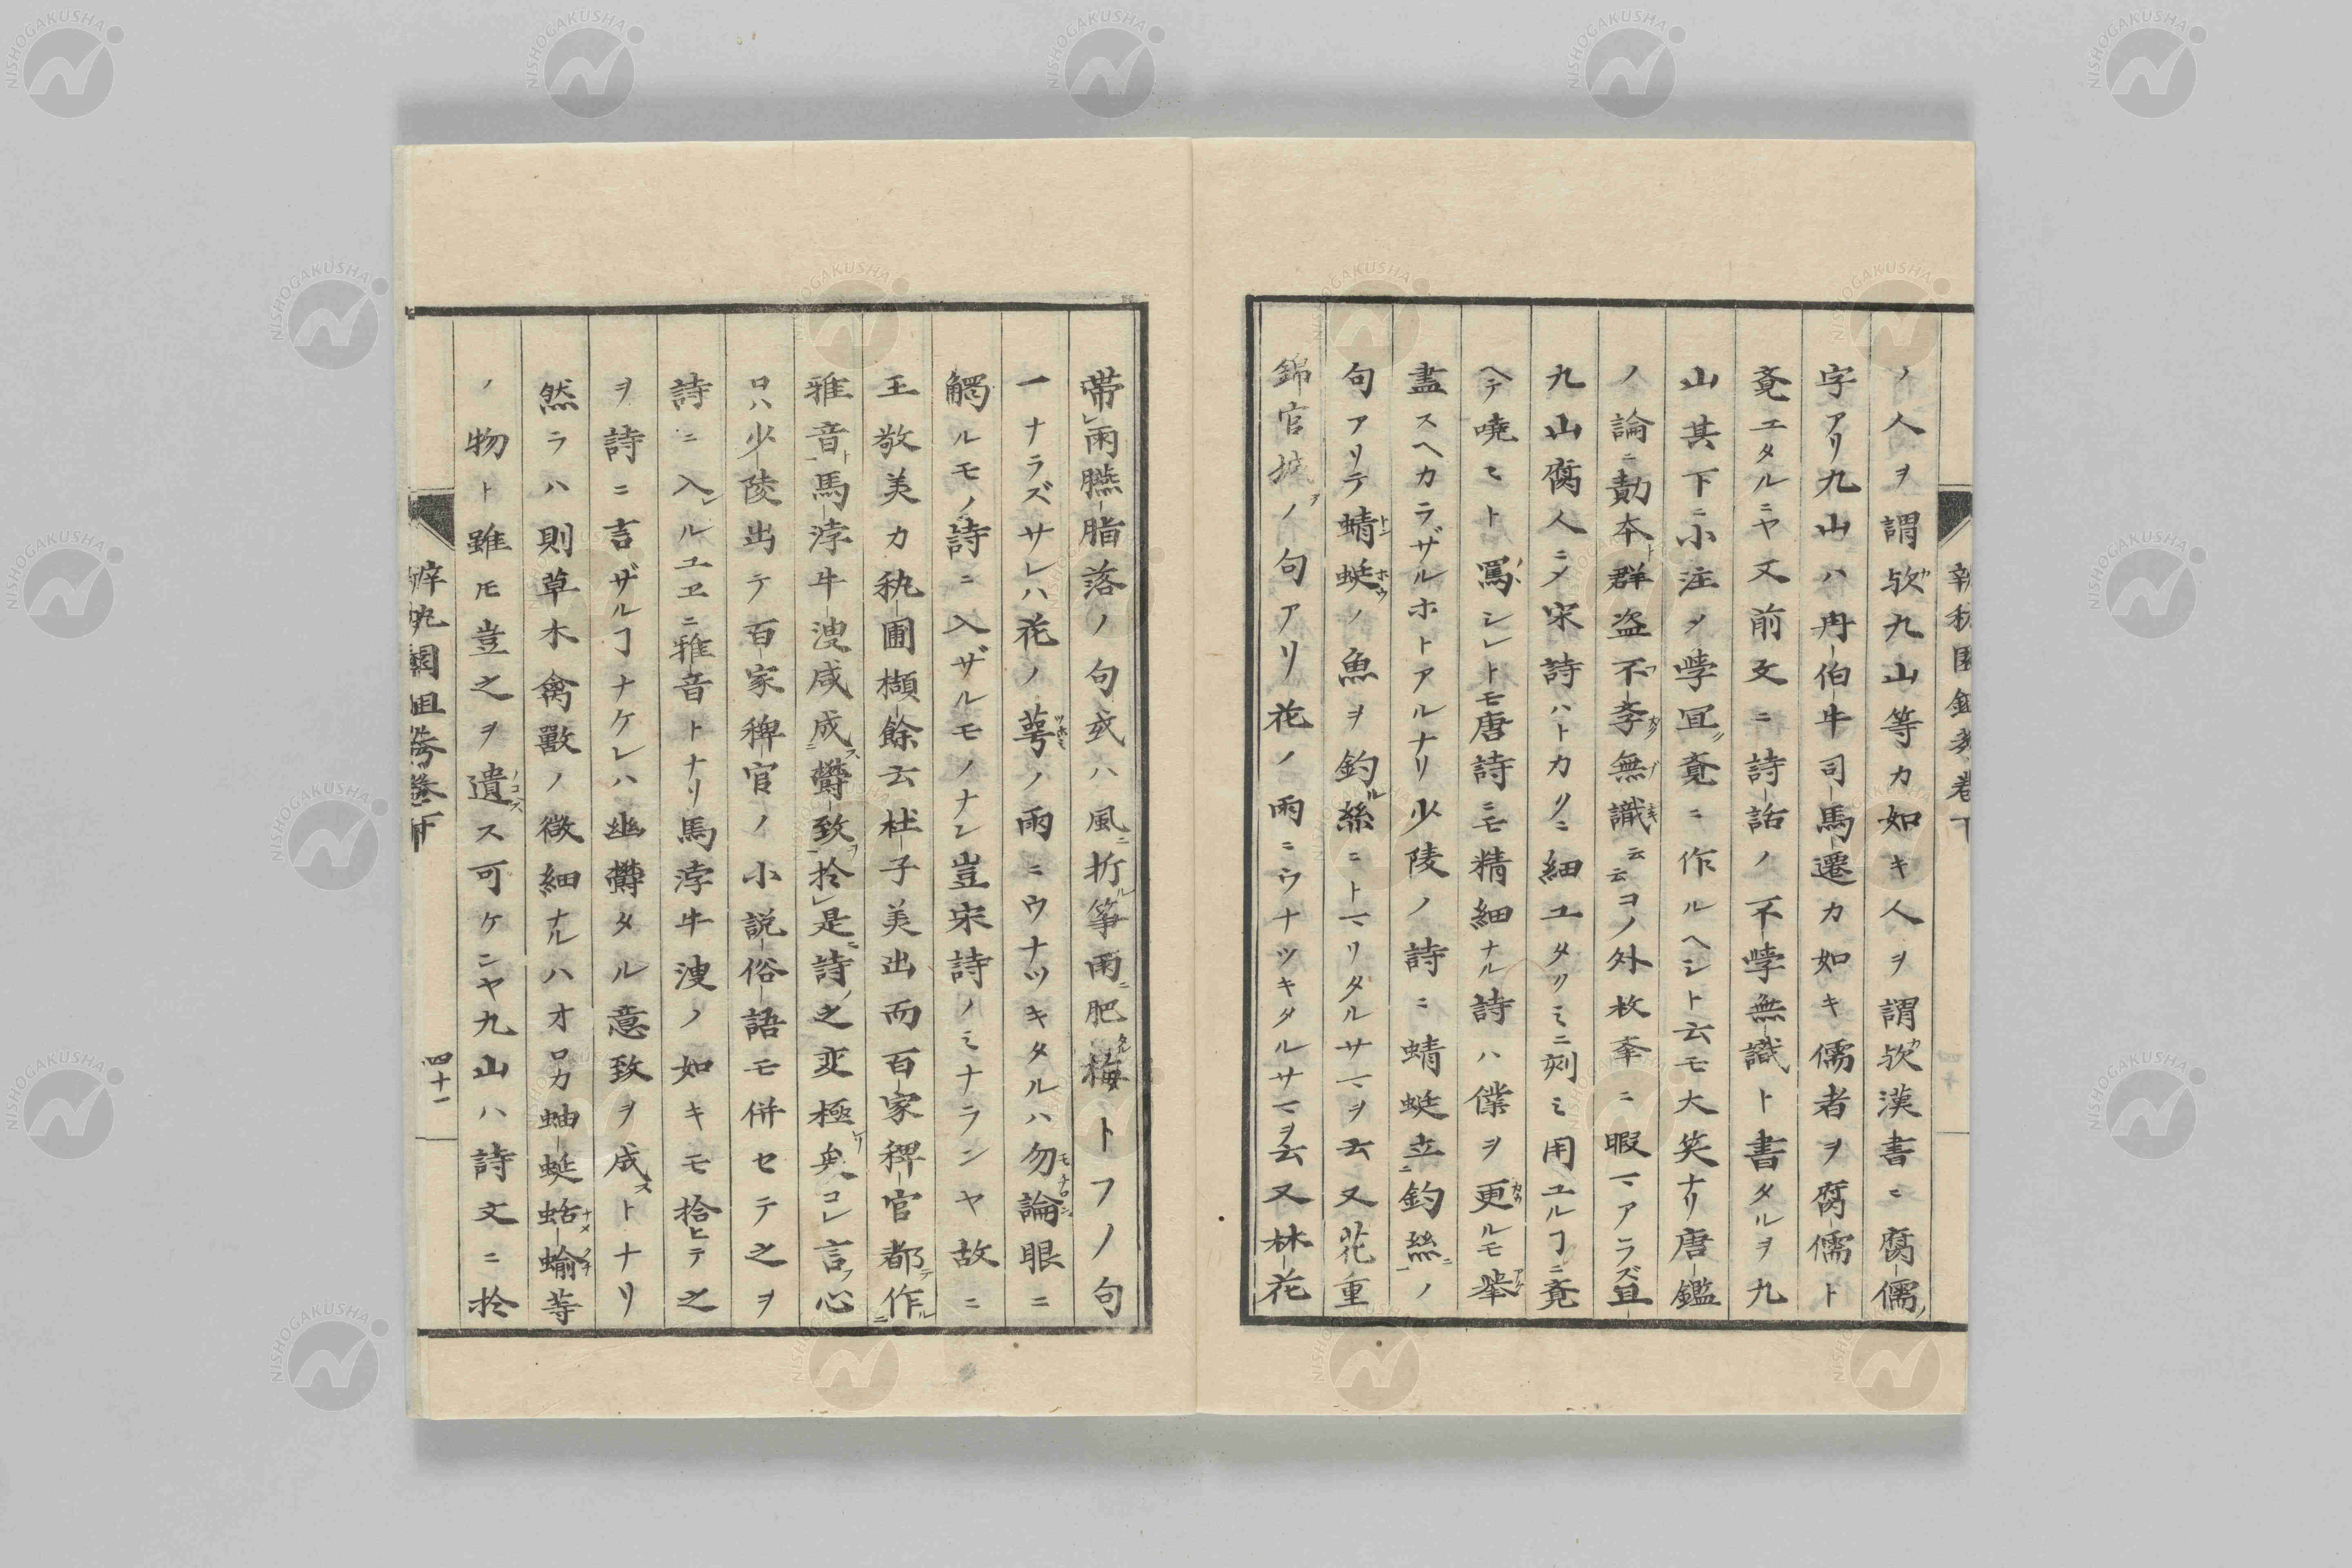 ノ人ヲ謂欤九山等カ如キ人ヲ謂欤漢書ニ腐儒ノ
字アリ九山ハ冉伯牛司馬遷カ如キ儒者ヲ腐儒ト
覚エタルニヤ又前文ニ詩話ノ不學無識ト書タルヲ九
山其下ニ小注メ學冝覚ニ作ルヘシト云モ大笑ナリ唐鑑
ノ論ニ勣本群盗不孝無識云云コノ外枚挙ニ暇マアラズ且
九山腐人ニメ宋詩ハトカクニ細ユタクミニ刻ミ用ユルヿニ覚
ヘテ暁セト罵シレトモ唐詩ニモ精細ナル詩ハ僕ヲ更ルモ挙
盡スヘカラザルホトアルナリ少陵ノ詩ニ蜻蜓立釣絲ノ
句アリテ蜻蜓ノ魚ヲ釣絲ニトマリタルサマヲ云又花重
錦官城ノ句アリ花ノ雨ニウナツキタルサマヲ云又林花
帯雨臙脂落ノ句或ハ風折筝雨肥梅トフノ句
一ナラズサレハ花ノ萼ノ雨ニウナツキタルハ勿論眼ニ
觸ルモノ詩ニ入ザルモノナシ豈宋詩ノミナランヤ故ニ
王敬美カ秇圃擷餘云杜子美出而百家稗官都作
雅音馬浡牛溲咸成欝致於是詩之変極矣コレ言心
ロハ少陵出テ百家稗官ノ小説俗語モ併セテ之ヲ
詩ニ入ルユヱニ雅音トナリ馬浡牛溲ノ如キモ拾ヒテ之
ヲ詩ニ言ザルヿナケレハ幽欝タル意致ヲ成ストナリ
然ラハ則草木禽獸ノ微細ナルハオロカ蚰蜒蛞蝓等
ノ物ト雖モ豈之ヲ遺ス可ケンヤ九山ハ詩文ニ於
四十一
NISHOGAKUSHA